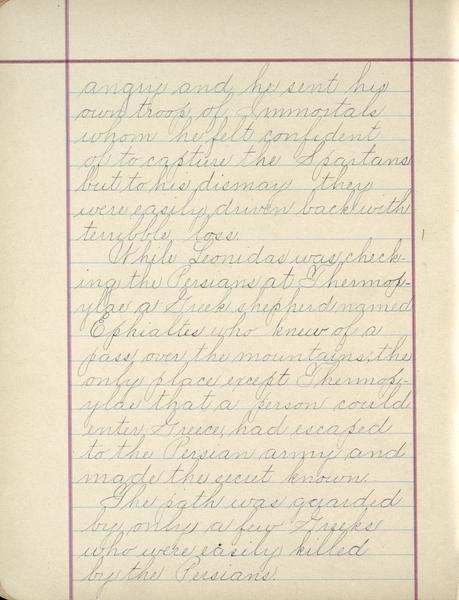 angry and he sent his
own troop of Immortals
whom he felt confident
of to capture the Spartans
but to his dismay they
were easily driven back with
terrible loss.
While Leonidas was check-
ing the Persians at Thermop-
ylae a Greek shepherd named
Ephialtes who knew of a
pass over the mountains, the
only place except Thermop-
ylae that a person could
enter Greece, had escaped
to the Persian army and
made the secret known.
The path was guarded
by only a few Greeks
who were easily killed
by the Persians.